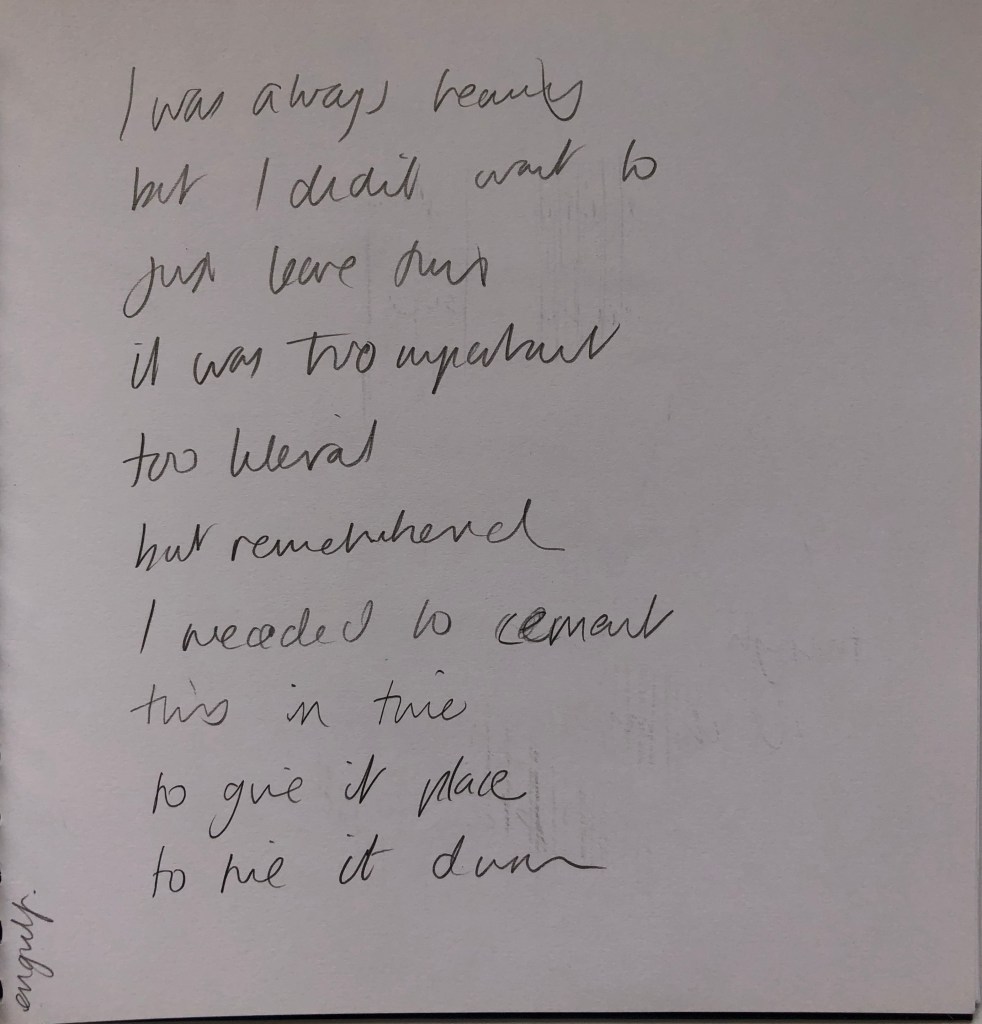 I was always leaving
but I didn't want to
just leave this
it was too important
too literal
but remembered
I needed to cement
this in time
to give it place
to tie it down
engulf.